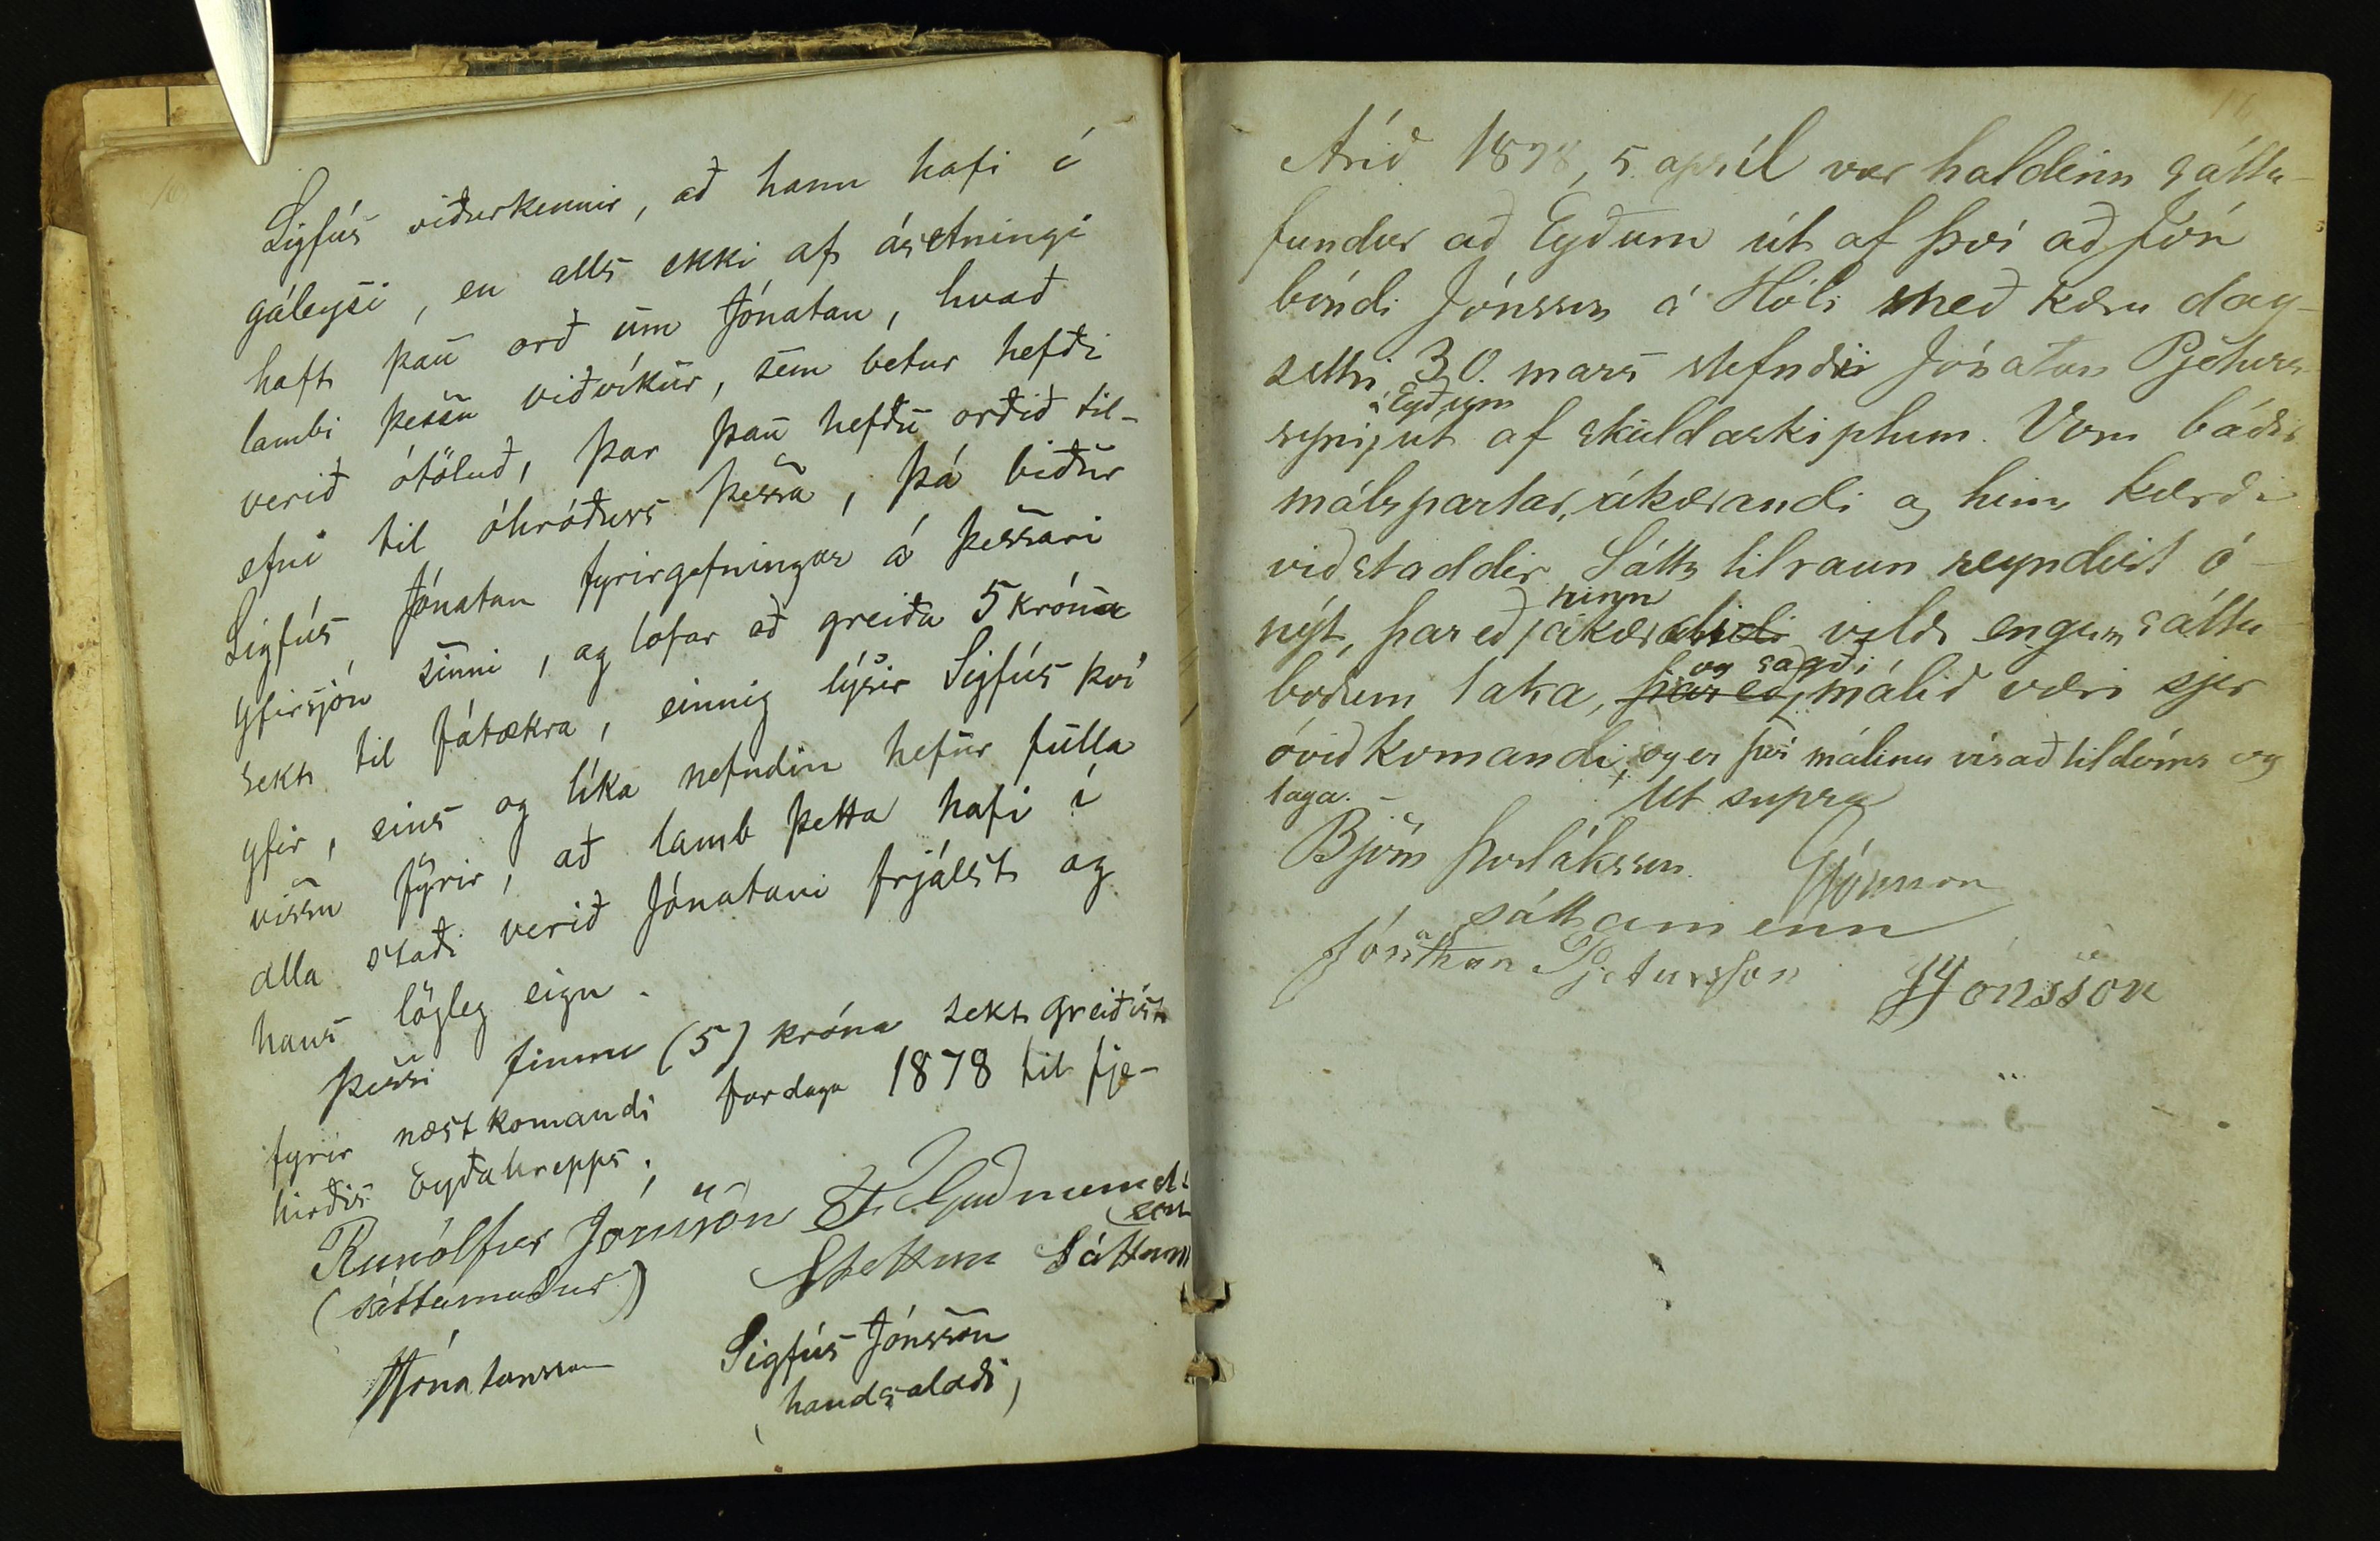 Sigfús viðurkennir, að hann hafi í
gáleysi, en alls ekki af ásetningi
haft þau orð um Jónatan, hvað
lambi þessu viðvíkur, sem betur hefði
verið ótöluð, þar þau hefðu orðið til-
efni til óhróðurs þessa, þá biður
Sigfús Jónatan fyrirgefningar á þessari
yfirsjón sinni, og lofar að greiða 5 króna
sekt til fátækra, einnig lýsir Sigfús því
yfir, eins og líka nefndin hefur fulla
vissu fyrir, að lamb þetta hafi í
alla staði verið Jónatani frjálst og
hans lögleg eign.
Þessi fimm (5) króna sekt greiðist
fyrir næstkomandi fardaga 1878 til fje-
hirðis Eyðahrepps.
Runólfur Jónsson Guðmunds
son
(sáttamaður) Settum Sáttam
JJónatansson Sigfús Jónsson
(handsalaði)
16
Árið 1878, 5. apríl var haldinn sátta-
fundur að Eyðum út af því að Jón
bóndi Jónsson á Hóli með kæru dag-
settri 30. mars stefndi Jónatan Pjeturs
á Eyðum
syni, út af skuldaskiptum. Voru báðir
málspartar, ákærandi og hinn kærði
viðstaddir. Sátta tilraun reyndist ó-
hinn
nýt, þar eð ákærandi vildi engum sátta
og sagði
boðum taka, þar eð málið væri sjer
óviðkomandi, og er því málinu vísað til dóms og
laga. - Ut supra
Björn Þorláksson. JJónsson
sáttamenn
Jónathan Pjetursson JJónsson